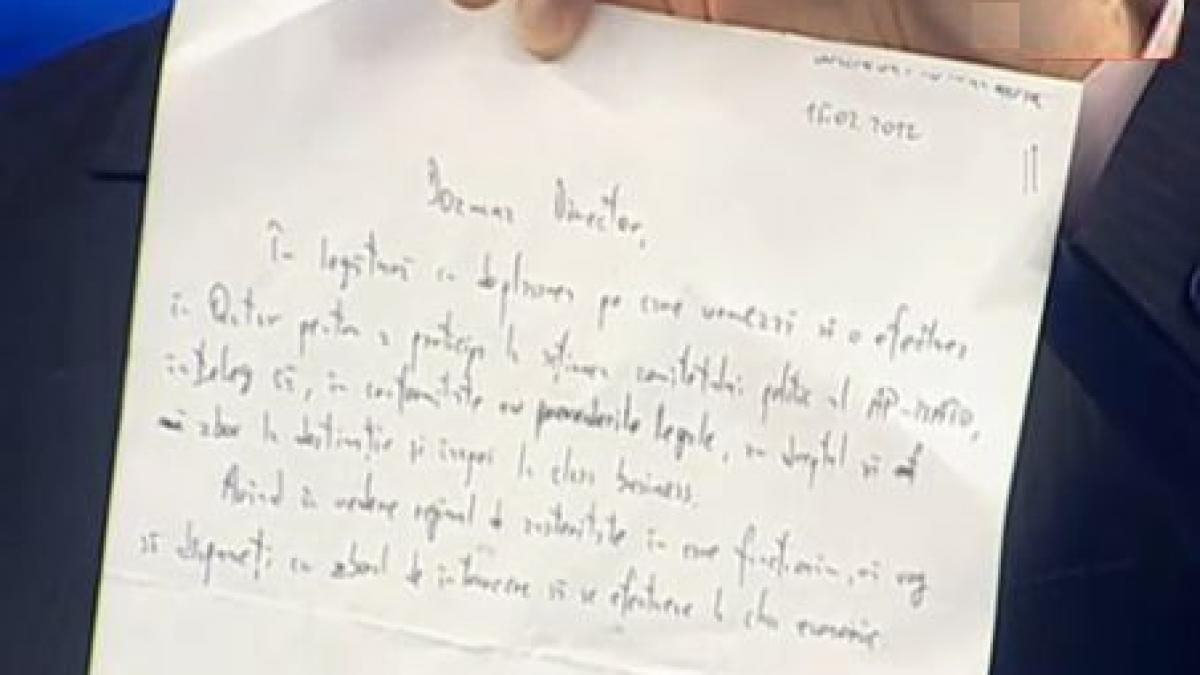 16.02.2012
Domnule Director,
În legătură cu deplasarea pe care urmează să o efectuez
în Qatar pentru a participa la reuniunea comitetului politic al AP-NATO,
înțeleg că, în conformitate cu prevederile legale, am dreptul să
zbor la destinație și înapoi la clasa business.
Având în vedere regimul de austeritate în care funcționăm, vă rog
să dispuneți ca zborul de întoarcere să se efectueze la clasa economic.